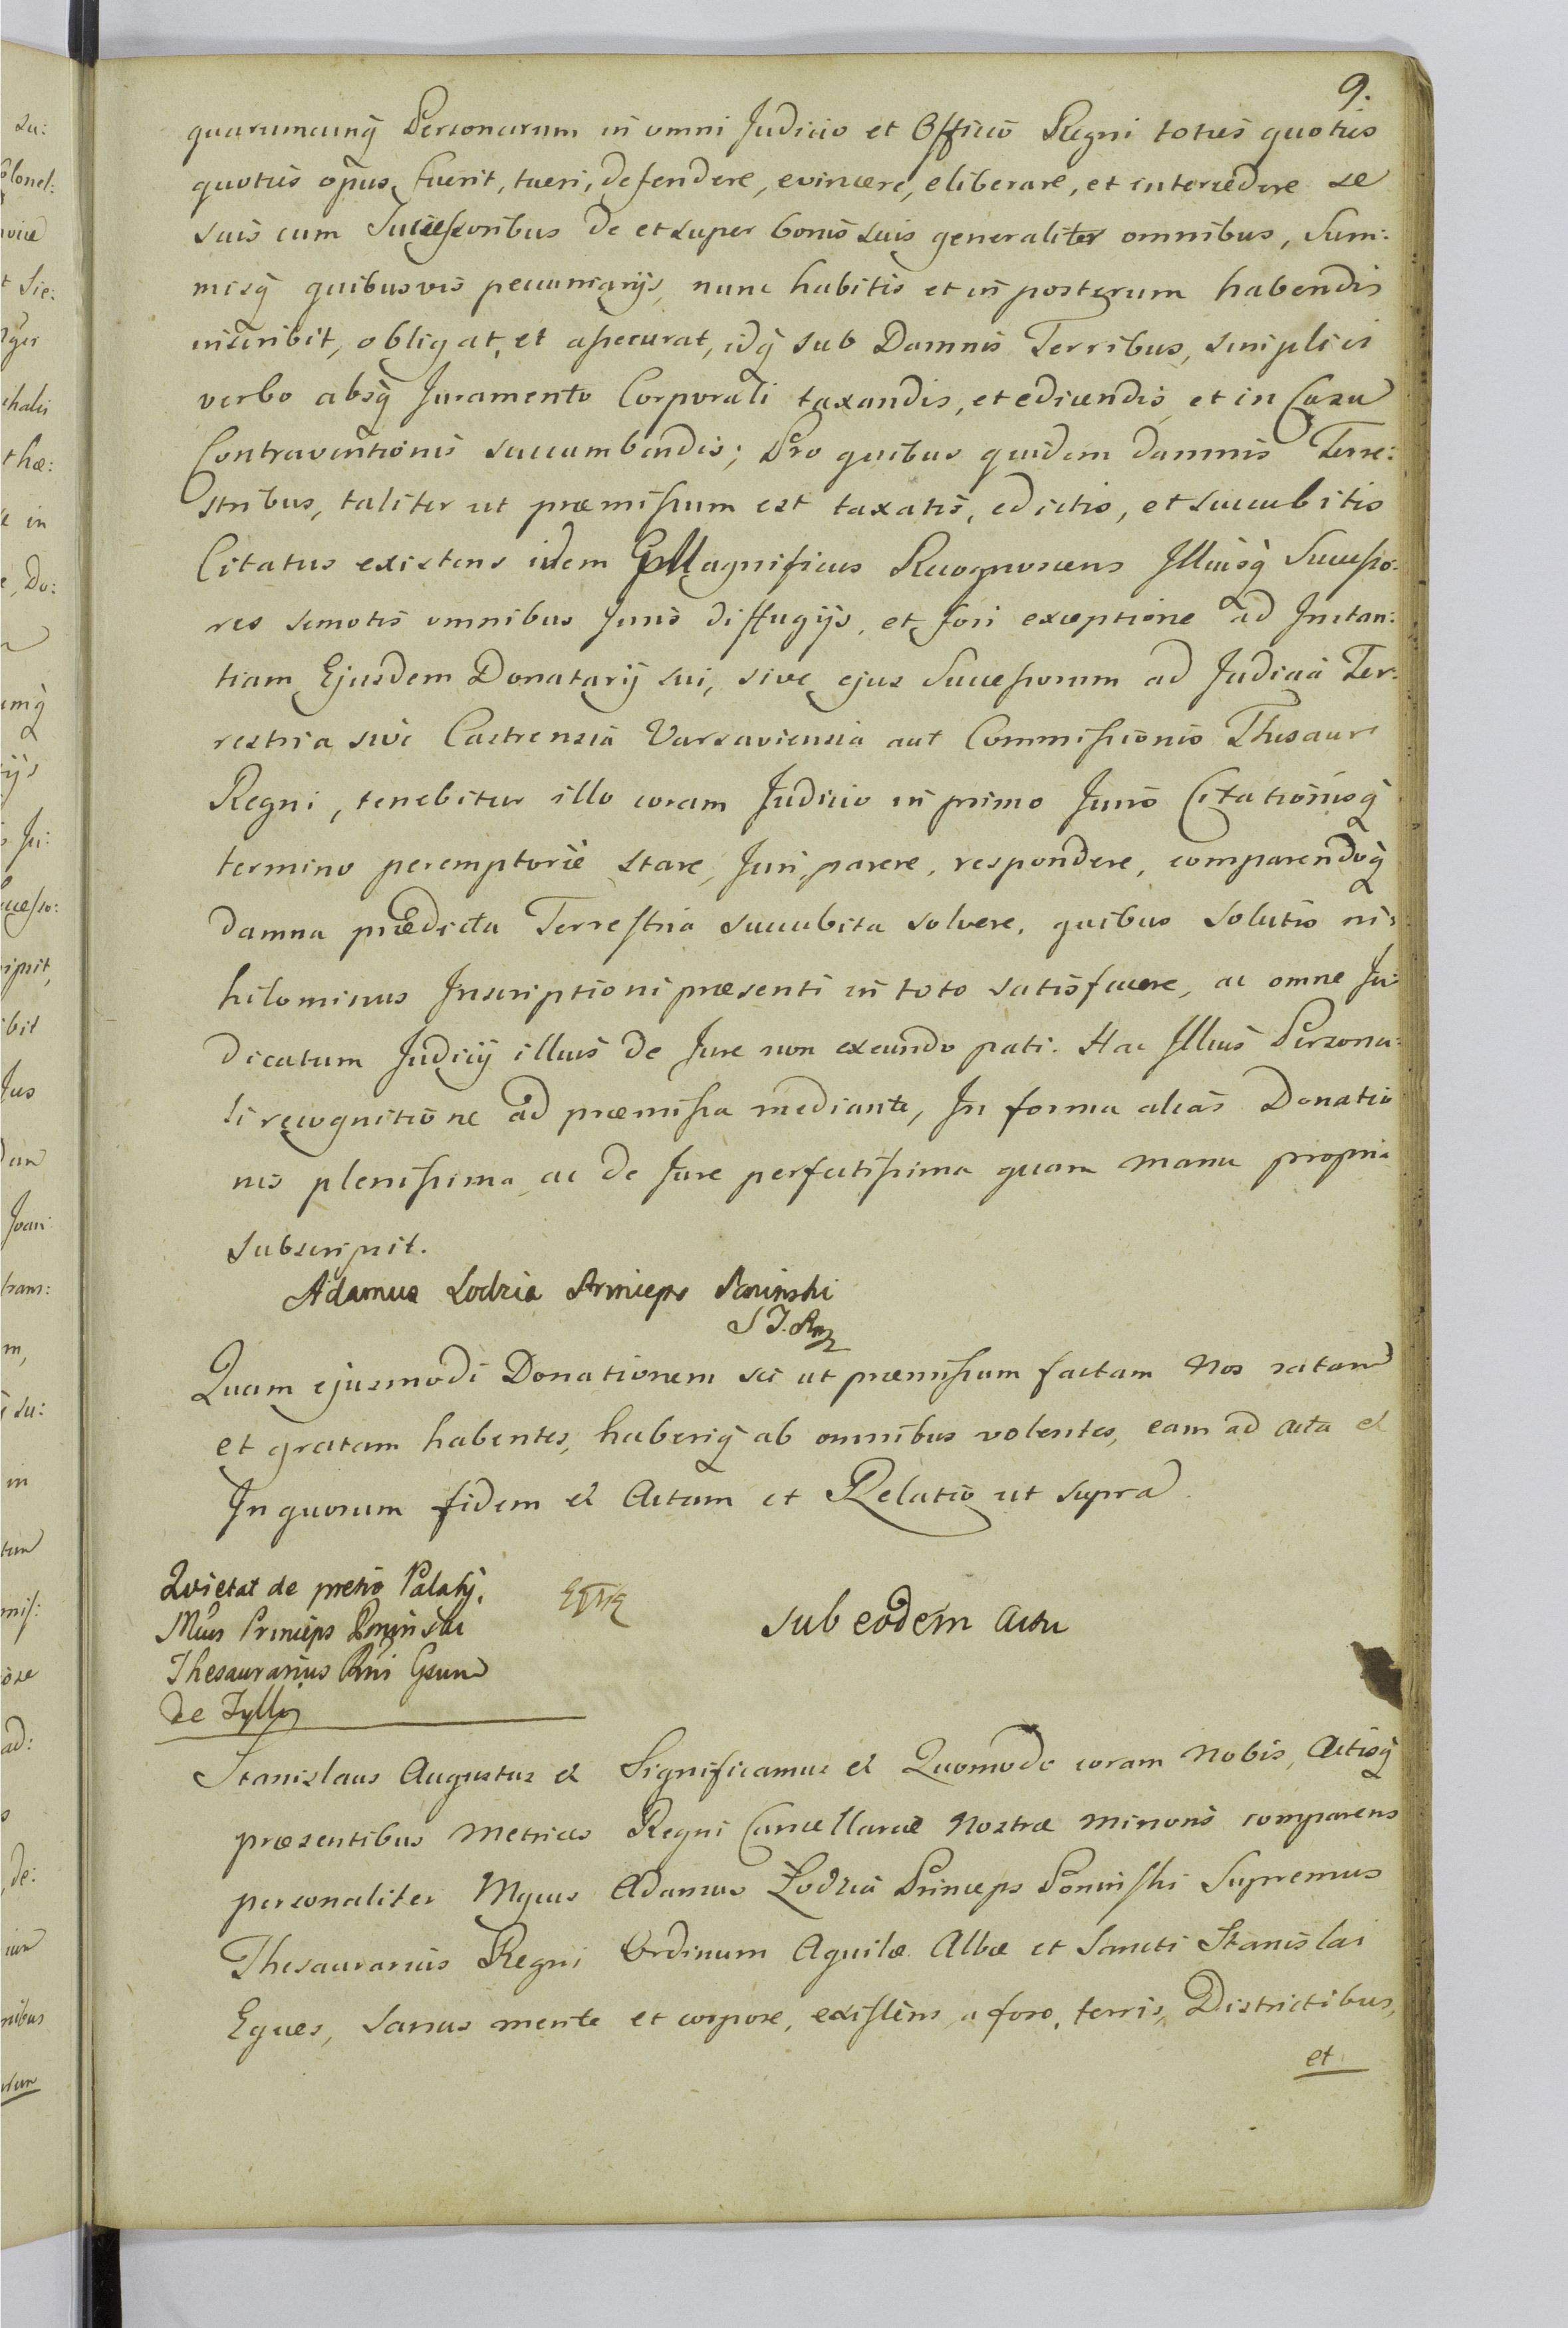 9.
quarumcunq̃ Personarum in omni Judicio et Officio Regni toties quoties
quoties opus fuerit, tueri, defendere, evincere, eliberare, et intercedere se
suis cum Successoribus de et super bonis suis generaliter omnibus, Sum:
misq̃ quibusvis pecuniarijs, nunc habitis et in posterum habendis
inscribit, obligat, et assecurat, idq̃ sub Damnis Terribus, simplici
verbo absq̃ Juramento Corporali taxandis, et edicendis, et in Casu
Contraventionis succumbendis; Pro quibus quidem damnis Terre:
stribus, taliter ut præmissum est taxatis, edictis, et succubitis
Citatus existens idem Magnificus Recognoscens Illiusq̃ Successo:
res semotis omnibus Juris diffugijs, et fori exceptione ad Instan:
tiam Ejusdem Donatarij sui, sive ejus Successorum ad Judicia Ter:
restria sive Castrensia Varsaviensia aut Commissionis Thesauri
Regni, tenebitur illo coram Judicio in primo Juris Citationisq̃
termino peremptorie stare, Juri parere, respondere, comparendoq̃
damna prædicta Terrestria succubita solvere, quibus solutis ni:
hilominus Inscriptioni præsenti in toto satisfacere, ac omne Ju:
dicatum Judicij illius de Jure non exeundo pati. Hac Illius Persona:
li recognitione ad præmissa mediante, In forma alias Donatio
nis plenissima ac de Jure perfectissima quam manu propria
subscripsit.
Adamus Lodzia Princeps Poninski
Quam ejusmodi Donationem sic ut præmissum factam Nos ratam
et gratam habentes, haberiq̃ ab omnibus volentes, eam ad acta &
In quorum fidem & Actum et Relatio ut supra.
Quietat de pretio Palatij.
Mcus Princeps Poninski
Thesaurarius Rni Gsum
de Tyller
sub eodem Actu
Stanislaus Augustus & Significamus & Quomodo coram Nobis, Actisq̃
præsentibus Metrices Regni Cancellariæ Nostræ Minoris comparens
personaliter Mgcus Adamus Łodzia Princeps Poninski Supremus
Thesaurarius Regni Ordinum Aquilæ Albæ et Sancti Stanislai
Eques, sanus mente et corpore, existens, a foro, terris, Districtibus,
et